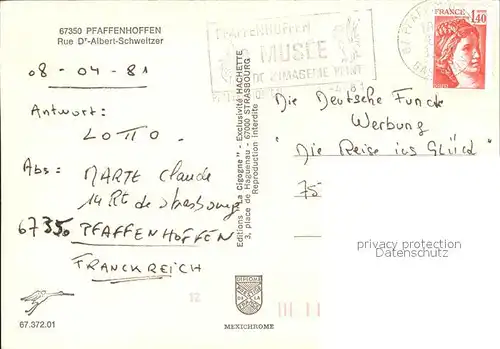 67350 PFAFFENHOFFEN
Rue Dr-Albert-Schweitzer
08-04-81
Antwort:
LOTTO.
Abs: MARTE Claude
14 Rt de Strasbourg
67350 PFAFFENHOFFEN
FRANCKREICH
67.372.01
Editions "La Cigogne" - Exclusivité HACHETTE
3, place de Haguenau - 67000 STRASBOURG
Reproduction Interdite
DIPLOME
MEXICHROME
12
PFAFFENHOFFEN
MUSEE
DE L'IMAGERIE PEINT
FRANCE
1,40
Die Deutsche Funck
Werbung
"Die Reise ins Glück"
75
privacy protection
Datenschutz